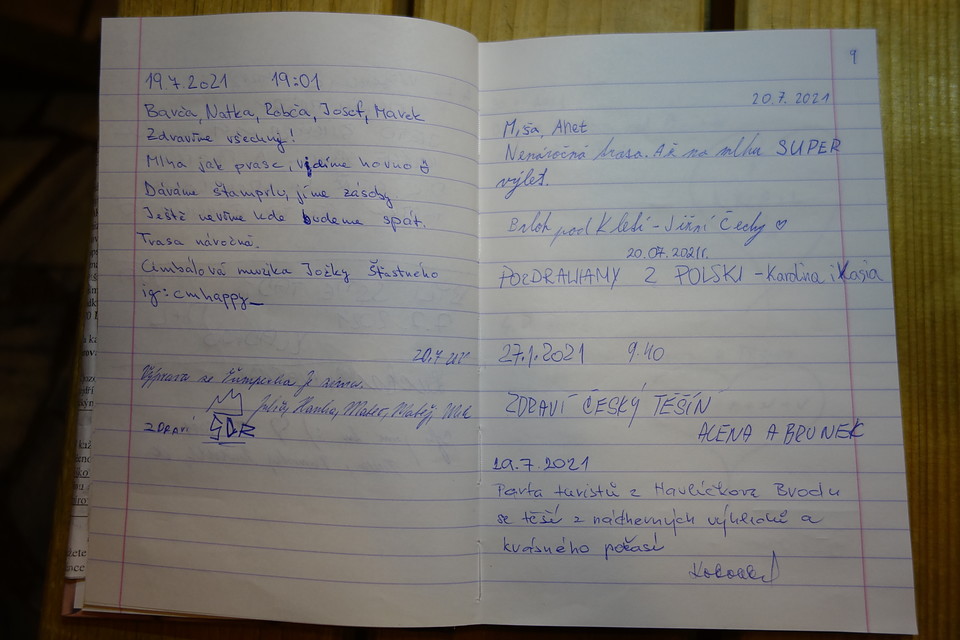 19.7.2021 19:01
Barča, Natka, Robča, Josef, Marek
Zdravíme všechny!
Mlha jak prase, vidíme hovno
Dáváme štamprly, jíme zásoby
Ještě nevíme kde budeme spát.
Trasa náročná.
Cimbálová muzika Jožky Šťastného
ig: cmhappy_
20.7
Výprava ze Šumperka je
Hanka, Matěj,
ZDRAVÍ
9
20.7.2021
Míša, Anet
Nenáročná trasa. Až na mlhu SUPER
výlet.
Brloh pod Kletí - Jižní Čechy ♡
20.07.2021r.
POZDRAWIAMY Z POLSKI - Karolina i Kasia
27.1.2021 9.40
ZDRAVÍ ČESKÝ TĚŠÍN
ALENA A BRUNEK
19.7.2021
Parta turistů z Havlíčkova Brodu
se těší z nádherných výhledů a
krásného počasí